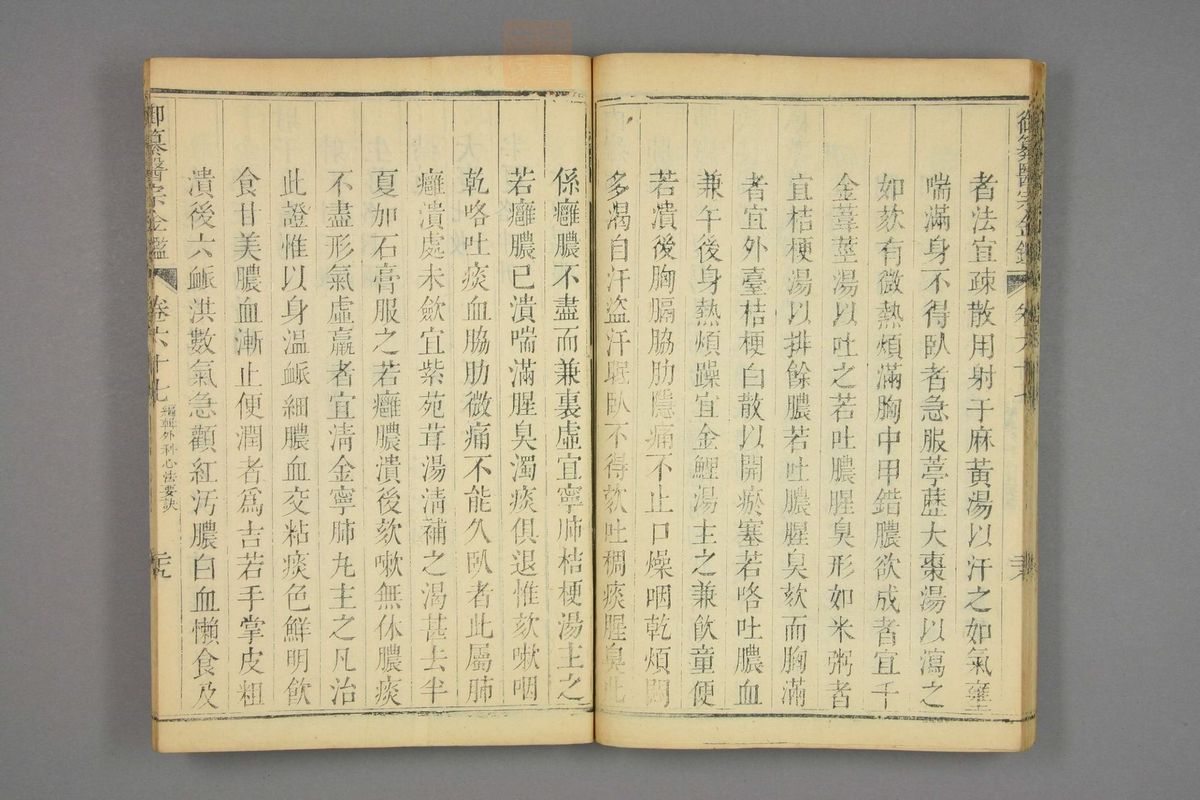 者法宜疎散用射干麻黃湯以汗之如氣壅
喘滿身不得臥者急服葶藶大棗湯以瀉之
如欬有微熱煩滿胸中甲錯膿欲成者宜千
金葦莖湯以吐之若吐膿腥臭形如米粥者
宜桔梗湯以排餘膿若吐膿腥臭欬而胸滿
者宜外臺桔梗白散以開瘀塞若咯吐膿血
兼午後身熱煩躁宜金鯉湯主之兼飮童便
若潰後胸膈脇肋隱痛不止口燥咽乾煩悶
多渴自汗盜汗眠臥不得欬吐稠痰腥臭此
係癰膿不盡而兼裏虛宜寧肺桔梗湯主之
若癰膿已潰喘滿腥臭濁痰俱退惟欬嗽咽
乾咯吐痰血脇肋微痛不能久臥者此屬肺
癰潰處未斂宜紫苑茸湯淸補之渴甚去半
夏加石膏服之若癰膿潰後欬嗽無休膿痰
不盡形氣虛羸者宜淸金寧肺丸主之凡治
此證惟以身温脈細膿血交粘痰色鮮明飮
食甘美膿血漸止便潤者爲吉若手掌皮粗
潰後六脈洪數氣急顴紅汚膿白血懶食及
御纂醫宗金鑑 卷六十七 編輯外科心法要訣 元